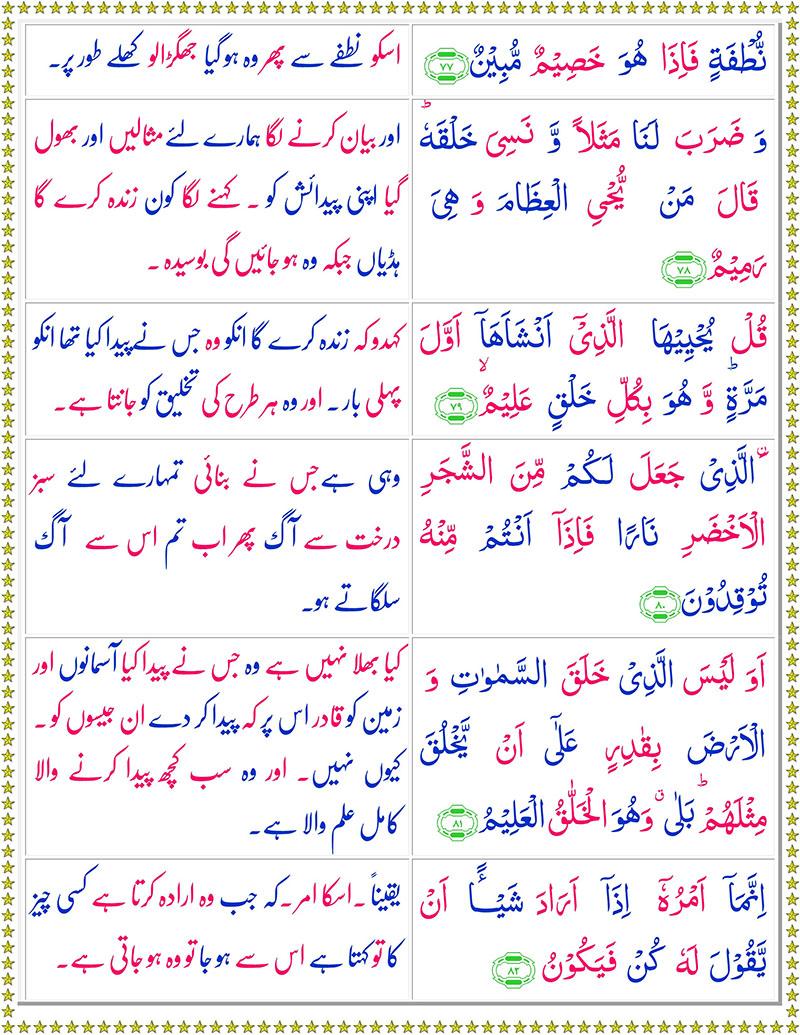 نُّطۡفَةٍ فَاِذَا هُوَ خَصِيۡمٌ مُّبِيۡنٌ ﴿۷۷﴾
اسکو نطفے سے پھر وہ ہو گیا جھگڑالو کھلے طور پر۔
وَ ضَرَبَ لَنَا مَثَلاً وَّ نَسِىَ خَلۡقَهٗ ؕ
قَالَ مَنۡ يُّحۡىِ الۡعِظَامَ وَ هِىَ
رَمِيۡمٌ ﴿۷۸﴾
اور بیان کرنے لگا ہمارے لئے مثالیں اور بھول
گیا اپنی پیدائش کو ۔ کہنے لگا کون زندہ کرے گا
ہڈیاں جبکہ وہ ہو جائیں گی بوسیدہ ۔
قُلۡ يُحۡيِيۡهَا الَّذِىۡۤ اَنۡشَاَهَاۤ اَوَّلَ
مَرَّةٍ ؕ وَّ هُوَ بِكُلِّ خَلۡقٍ عَلِيۡمٌ ۙ ﴿۷۹﴾
کہدو کہ زندہ کرے گا انکو وہ جس نے پیدا کیا تھا انکو
پہلی بار ۔ اور وہ ہر طرح کی تخلیق کو جانتا ہے۔
اۨلَّذِىۡ جَعَلَ لَـكُمۡ مِّنَ الشَّجَرِ
الۡاَخۡضَرِ نَارًا فَاِذَاۤ اَنۡتُمۡ مِّنۡهُ
تُوۡقِدُوۡنَ ﴿۸۰﴾
وہی ہے جس نے بنائی تمہارے لئے سبز
درخت سے آگ پھر اب تم اس سے آگ
سلگاتے ہو۔
اَوَ لَيۡسَ الَّذِىۡ خَلَقَ السَّمٰوٰتِ وَ
الۡاَرۡضَ بِقٰدِرٍ عَلٰٓى اَنۡ يَّخۡلُقَ
مِثۡلَهُمۡ ؕ بَلٰى ۗ وَهُوَ الۡخَـلّٰقُ الۡعَلِيۡمُ ﴿۸۱﴾
کیا بھلا نہیں ہے وہ جس نے پیدا کیا آسمانوں اور
زمین کو قادر اس پر کہ پیدا کر دے ان جیسوں کو ۔
کیوں نہیں۔ اور وہ سب کچھ پیدا کرنے والا
کامل علم والا ہے۔
اِنَّمَاۤ اَمۡرُهٗۤ اِذَاۤ اَرَادَ شَيۡــًٔـا اَنۡ
يَّقُوۡلَ لَهٗ كُنۡ فَيَكُوۡنُ ﴿۸۲﴾
یقیناً ۔ اسکا امر ۔ کہ جب وہ ارادہ کرتا ہے کسی چیز
کا تو کہتا ہے اس سے ہو جا تو وہ ہو جاتی ہے۔